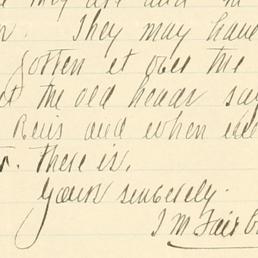 they are and
They may have
gotten it over the
the old heads say
Reis and when
There is.
Yours sincerely.
J M Fair